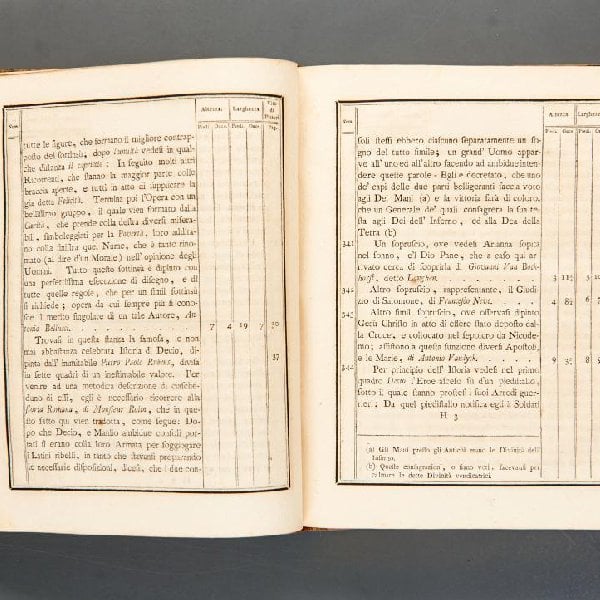 Num.
Altezza
Larghezza
Vite di Pittori
Piedi. Once. Piedi. Once. Pag.
tutte le figure, che formano il migliore contrap-
posto del sottinsù, dopo
che distanza il
Ricorrenti, che stanno la maggior parte colle
braccia aperte, e tutti in atto di supplicare la
già dette Felicità. Termina poi l'Opera con un
bellissimo gruppo, il quale vien formato dalla
Carità, che prende colla destra diversi
bili, simboleggiati per la Povertà, loro addita-
no colla sinistra que. Nume, che è tanto
to (al dire d'un Morale) nell'opinione degli
Uomini. Tutto questo sottinsù è dipinto con
una perfettissima esecuzione di disegno, e di
tutte quelle regole, che per un simil sottinsù
si richiede; opera da cui sempre più si cono-
sce il merito singolare di un tale Autore, An-
tonio Bellucci. 7 4 19 7 30
Trovasi in questa stanza la famosa, e non
mai abbastanza celebrata Istoria di Decio, di-
pinta dall'inimitabile Pietro Paolo Rubens, divisa 37
in sette quadri di un inestimabile valore. Per
venire ad una metodica descrizione di ciasche-
duno di essi, egli è necessario ricorrere alla
Storia Romana, di Monsieur Rolin, che in que-
sto fatto qui vien tradotta, come segue: Do-
po che Decio, e Manlio ambidue consoli por-
tati si erano colla loro Armata per soggiogare
i Latini ribelli, in tanto che stavasi preparando
le necessarie disposizioni, Tenà, che i due con-
Num.
Altezza
Larghezza
Piedi. Once. Piedi. Once.
soli stessi ebbero ciascuno separatamente un so-
gno del tutto simile; un grand' Uomo appar-
ve all' uno ed all' altro facendo ad ambidue inten-
dere queste parole. Egli è decretato, che uno
de' capi delle due parti belligeranti faccia voto
agli Dei Mani (a) e la vittoria sarà di coloro,
che un Generale de' quali consagrerà la sua te-
sta agli Dei dell' Inferno, ed alla Dea della
Terra (b)
341 Un soprascio, ove vedesi Arianna sopra
nel sonno, e'l Dio Pane, che a caso qui ar-
rivato cerca di scoprirla di Giovanni Van Bock-
horst, detto Langhen. 3 11½ 3 10
342 Altro soprascio, rappresentante, il Giudi-
zio di Salomone, di Francesco Neve. 4 8½ 6 7
343 Altro simil soprascio, ove osservasi dipinto
Gesù Christo in atto di essere stato deposto dal-
la Croce, e collocato nel sepolcro da Nicode-
mo; assistono a questa funzione diversi Apostoli,
e le Marie, di Antonio Vandych. 9 3½ 8 9
344 Per principio dell' Istoria vedesi nel primo
quadro Decio l'Eroe
sotto il quale stanno prostesi i suoi Arredi guer-
rieri: Da quel piedistallo notifica egli à Soldati
H 3
(a) Gli Mani presso gli Antichi erano le Divinità dell'
Inferno.
(b) Queste consagrazioni, o siano voti, facevansi per
calmare le dette Divinità vendicatrici.